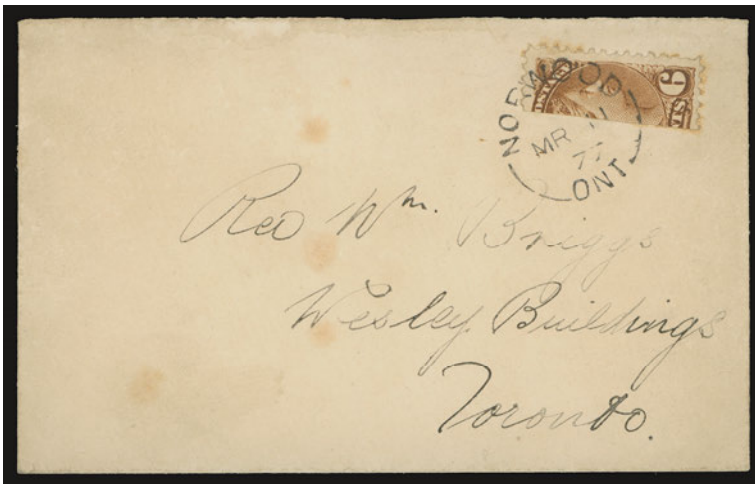 NORWOOD
MR 11
77
ONT.
6
Rev Wm. Briggs
Wesley Buildings
Toronto.